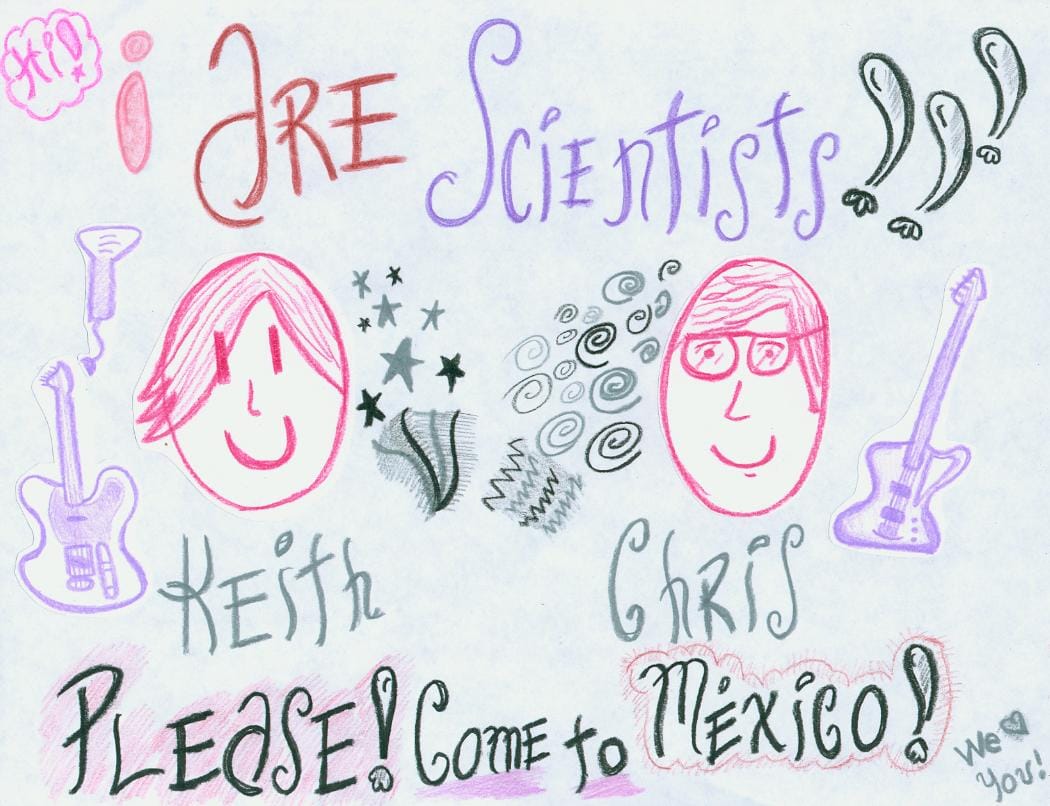 Hi!
i ARE Scientists!!!
Keith
Chris
PLEaSE! Come to MéxiCo!
We
you!